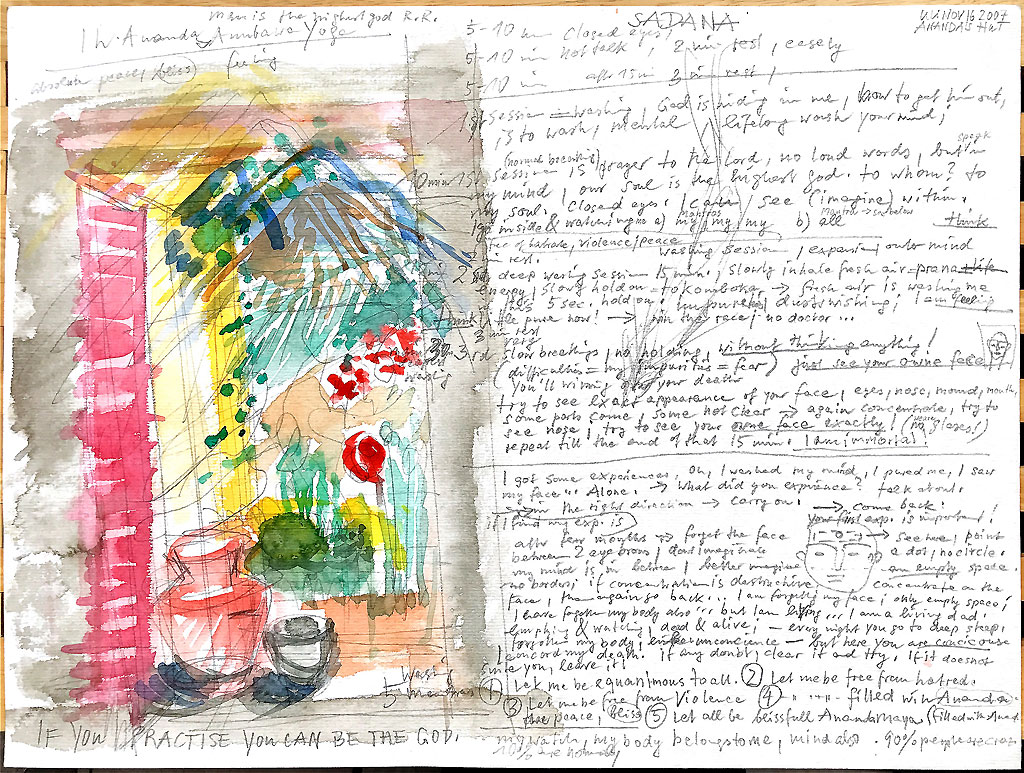 man is the highest god R.R.
1 hr. Ananda Anubava Yoga
absolute peace, (bliss) feeling
SADANA
KK NOV 16 2007
ANANDA'S HUT
5-10 min closed eyes,
5-10 min not talk, 2 min rest, easely
5-10 min after 15 min 3 min rest,
1st session = washing, God is hiding in me, how to get him out,
is to wash, mental, lifelong wash your mind,
speak
(normal breathing)
10 min 1st session 15, prayer to the Lord, no loud words, but in
my mind, our soul is the highest god. to whom? to
my soul. Closed eyes. I can see (imagine) within.
go inside & watching me a) my, my, my b) all
Mantras
Mantra → see below
think
free of hatrate, violence, peace
rest.
washing session, outer mind
2nd deep wasing session 15 min., slowly inhale fresh air = prana = life
energy, slowly hold on = to kombaka → fresh air is washing me
5 sec. hold on. impureties dustwishing, I am feeling
pure now! → join the race, no doctor...
3 min rest
3rd slow breathings, no holding, without thinking anything!
(difficulties = my impurities = fear) just see your owne face
you'll winning over your death
wasing
try to see exact appearance of your face, eyes, nose, mound, mouth,
some parts come, some not clear → again concentrate, try to
see nose, try to see your owne face exactly! (no glases!)
repeat till the end of that 15 min. I am immortal!
I got some experiences. Oh, I washed my mind, I pured me, I saw
my face... Alone. → What did you exprience? talk about.
in the right direction → carry on. → come back!
if I find my exp. is
your first exp. is important!
after fear months → forget the face → See here, point
between 2 eyebrows, dont imaginate a dot, no circle.
my mind is in before, better imagine an empty space.
no borders, if concentration is destructive concentrate on the
face, then again go back... I am forgetting my face, only empty space,
I have forgotten my body also... but I am living... I am a living dead
& watching dead & alive, — every night you go to deep sleep,
forgotten my body, in unconcience — but here you are conciouse
my death. if any doubt, clear it and try, if it does not
sure you, leave it!
Wasing
5 mantras ① Let me be equanimous to all. ② Let me be free from hatred.
③ Let me be free from violence ④ " " filled with Ananda
the peace, bliss ⑤ Let all be blissfull Anandamaya (filled with Anand
my watch, my body belongs to me, mind also. 90% people are crazy
10% are normally
IF YOU PRACTISE YOU CAN BE THE GOD.